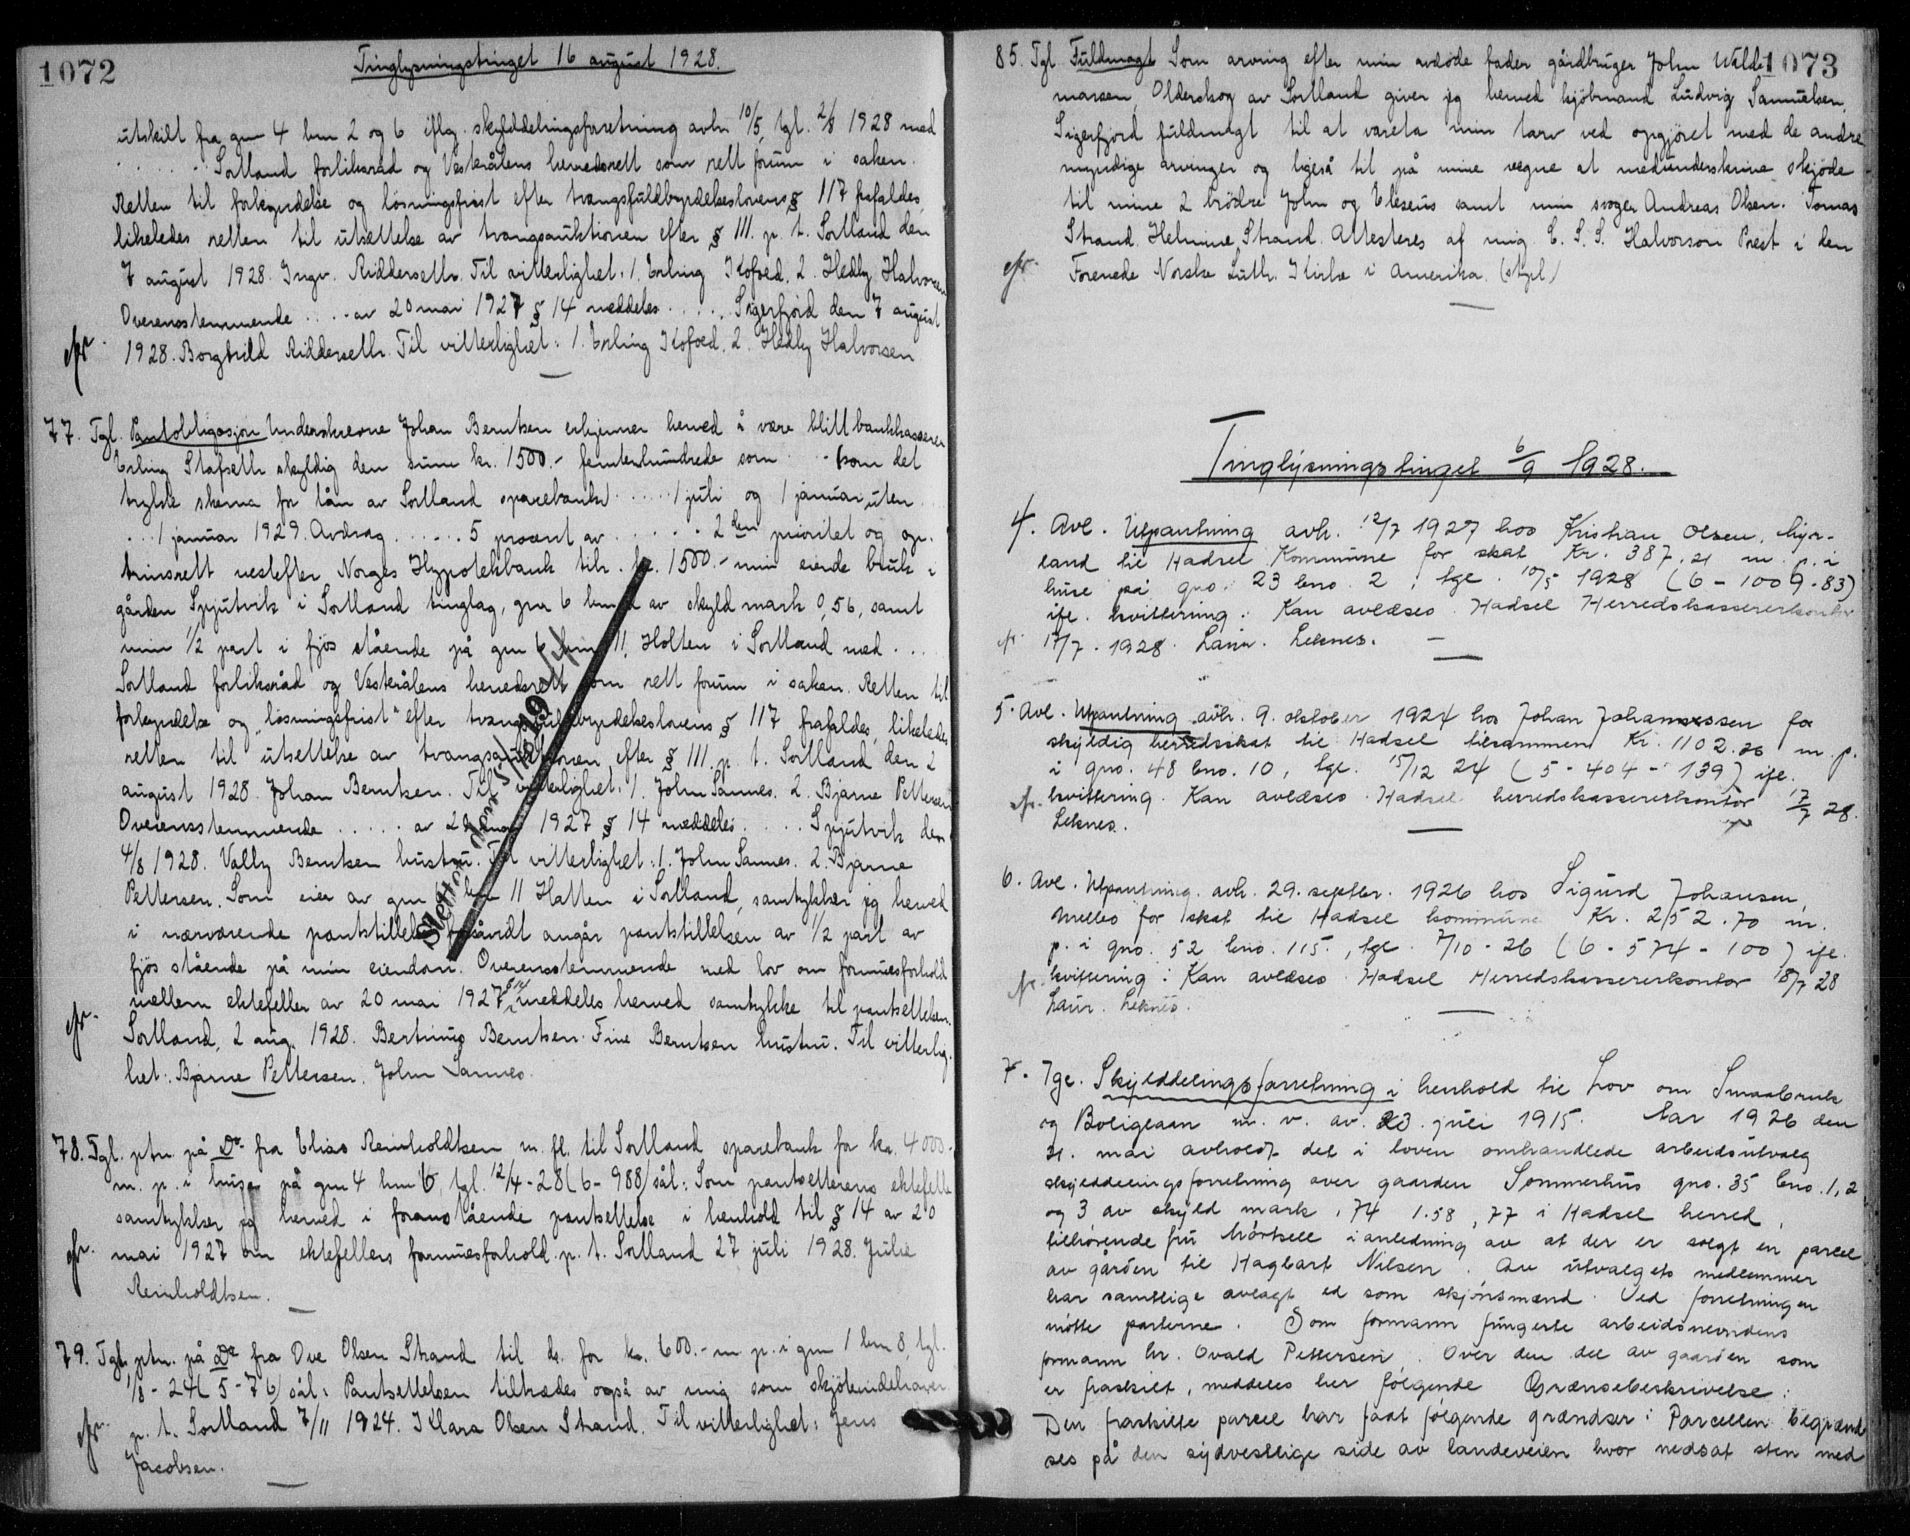 1072
Tinglysningstinget 16 august 1928.
utskilt fra gnr 4 bnr 2 og 6 iflg. skylddelingsforretning avh. 10/5, tgl. 2/8 1928 med
. . . . . Sortland forliksråd og Vesterålens herredsrett som rett forum i saken.
Retten til forkyndelse og løsningsfrist efter tvangsfuldbyrdelseslovens § 117 frafaldes,
likeledes retten til utsettelse av tvangsauktionen efter § 111. p. t. Sortland den
7 august 1928. Ingv. Ridderseth. Til vitterlighet: 1. Erling Kofoed. 2. Hedly Halvorsen
Overensstemmende . . . . av 20 mai 1927 § 14 meddeles . . . . . Sigerfjord den 7 august
1928. Borghild Ridderseth. Til vitterlighet: 1. Erling Kofoed. 2. Hedly Halvorsen
77. Tgl. Pantobligasjon Underskrevne Johan Berntsen erkjenner herved å være blitt bankkasserer
Erling Stafseth skyldig den sum kr. 1500.- femtenhundrede som . . . (som det
trykte skema for lån av Sortland sparebank) . . . . . 1 juli og 1 januar, uten . .
. . . 1 januar 1929. Avdrag . . . . . 5 prosent av . . . . . . 2den prioritet og op-
trinsrett nestefter Norges Hypotekbank tilh. kr. 1500.- min eiende bruk i
gården Spjutvik i Sortland tinglag, gnr 6 bnr av skyld mark 0,56, samt
min 1/2 part i fjøs stående på gnr 6 bnr 11, Holten i Sortland med . . . .
Sortland forliksråd og Vesterålens herredsrett som rett forum i saken. Retten til
forkyndelse og "løsningsfrist" efter tvangsfuldbyrdelseslovens § 117 frafaldes, likeledes
retten til utsettelse av tvangsauktionen efter § 111. p. t. Sortland den 2
august 1928. Johan Berntsen. Til vitterlighet: 1. John Sannes. 2. Bjarne Pettersen
Overensstemmende . . . . . av 20 mai 1927 § 14 meddeles . . . . Spjutvik den
4/8 1928. Valby Berntsen hustru. Til vitterlighet: 1. John Sannes. 2. Bjarne
Pettersen. Som eier av gnr 6 bnr 11 Holten i Sortland, samtykker jeg herved
i nærværende pantstillelse forsåvidt angår pantstillelsen av 1/2 part av
fjøs stående på min eiendom. Overensstemmende med lov om formuesforhold
mellem ektefeller av 20 mai 1927 § 14 meddeles herved samtykke til pantsettelsen.
Sortland, 2 aug. 1928. Bertinus Berntsen. Fine Berntsen hustru. Til vitterlig-
het: Bjarne Pettersen. John Sannes.
Slettet den
78. Tgl. ptn. på Do fra Elias Reinholdtsen m. fl. til Sortland sparebank for kr. 4000.-
m. p. i huse på gnr 4 bnr 6, tgl. 12/4-28 (6-988) sål: Som pantsetterens ektefelle
samtykker jeg herved i foranstående pantsettelse i henhold til § 14 av 20
mai 1927 om ektefellers formuesforhold. p. t. Sortland 27 juli 1928. Julie
Reinholdtsen.
79. Tgl. ptn. på Do fra Ove Olsen Strand til ds. for kr. 600.- m p. i gnr 1 bnr 8, tgl.
1/8-24 (5-76) sål: Pantsettelsen tiltrædes også av mig som skjøteindehaver
p. t. Sortland 7/11 1924. Klara Olsen Strand. Til vitterlighet: Jens
Jacobsen.
1073
85. Tgl. Fuldmagt Som arving efter min avdøde fader gårdbruger John Walde-
marsen, Olderskog av Sortland giver jeg herved kjøbmand Ludvig Samuelsen,
Sigerfjord fuldmagt til at vareta min tarv ved opgjøret med de andre
myndige arvinger og ligeså til på mine vegne at medunderskrive skjøde
til mine 2 brødre John og Eleseus samt min svoger Andreas Olsen. Tomas
Strand. Helmine Strand. Attesteres af mig C. S. S. Halvorson Prest i den
Forenede Norske Luth. Kirke i Amerika. (stpl)
Tinglysningstinget 6/9 1928.
4. Avl. Utpantning avh. 12/7 1927 hos Kristian Olsen,
land til Hadsel Kommune for skat Kr. 387.21 m. p. i
huse på gno. 23 bno. 2, tgl. 10/5 1928 (6-1009-83)
ifl. kvittering: Kan avlæses. Hadsel Herredskassererkontor
17/7. 1928. Laur. Leknes.
5. Avl. Utpantning avh. 9. oktober 1924 hos Johan Johannessen for
skyldig herredsskat til Hadsel tilsammen Kr. 1102.26 m. p.
i gno. 48 bno. 10, tgl. 15/12 24 (5-404-139) ifl.
kvittering. Kan avlæses. Hadsel herredskassererkontor 17/7 28.
Leknes.
6. Avl. Utpantning. avh. 29. septbr. 1926 hos Sigurd Johansen,
Melbo for skat til Hadsel kommune Kr. 252.70 m.
p. i gno. 52 bno. 115., tgl. 7/10-26 (6-574-100) ifl.
kvittering: Kan avlæses. Hadsel Herredskassererkontor 18/7 28
Laur. Leknes.
7. Tgl. Skylddelingsforretning i henhold til Lov om Smaabruk
og Boliglaan m. v. av. 23. juli 1915. Aar 1926 den
21. mai avholdt det i loven omhandlede arbeidsutvalg
skylddelingsforretning over gaarden Sommerhus gno. 35 bno. 1, 2
og 3 av skyld mark , 74 1.58 , 77 i Hadsel herred,
tilhørende fru Mørtsell i anledning av at der er solgt en parcel
av gården til Hagbart Nilsen. Av utvalgets medlemmer
har samtlige avlagt ed som skjønsmænd. Ved forretningen
møtte parterne. Som formann fungerte arbeidsnevndens
formann hr. Ovald Pettersen. Over den del av gaarden som
er fraskilt, meddeles her følgende Grænsebeskrivelse:
Den fraskilte parcel har faat følgende grændser: Parcellen begrænd-
ses på den sydvestlige side av landeveien hvor nedsat sten med